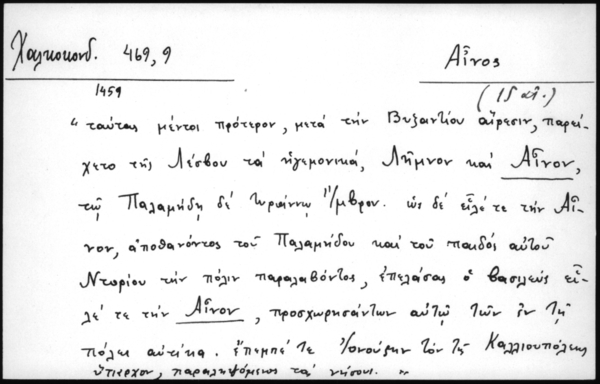 Χαλκοκονδ. 469, 9
Αἶνος
1459
(15 αἰ.)
"ταύτας μέντοι πρότερον, μετά τήν Βυζαντίου αἵρεσιν, παρεί-
χετο τῆς Λέσβου τά ἡγεμονικά, Λῆμνον καί Αἶνον,
τῷ Παλαμήδῃ δέ τυράννῳ Ἴμβρον. ὡς δέ εἷλέ τε τήν Αἶ-
νον, ἀποθανόντος τοῦ Παλαμήδου καί τοῦ παιδός αὐτοῦ
Ντωρίου τήν πόλιν παραλαβόντος, ἐπελάσας ὁ βασιλεύς εἷ-
λέ τε τήν Αἶνον, προσχωρησάντων αὐτῷ τῶν ἐν τῇ
πόλει αὐτίκα. ἔπεμπέ τε Ἰονούζην τόν τῆς Καλλιουπόλεως
ὕπαρχον, παραληψόμενος τάς νήσους."